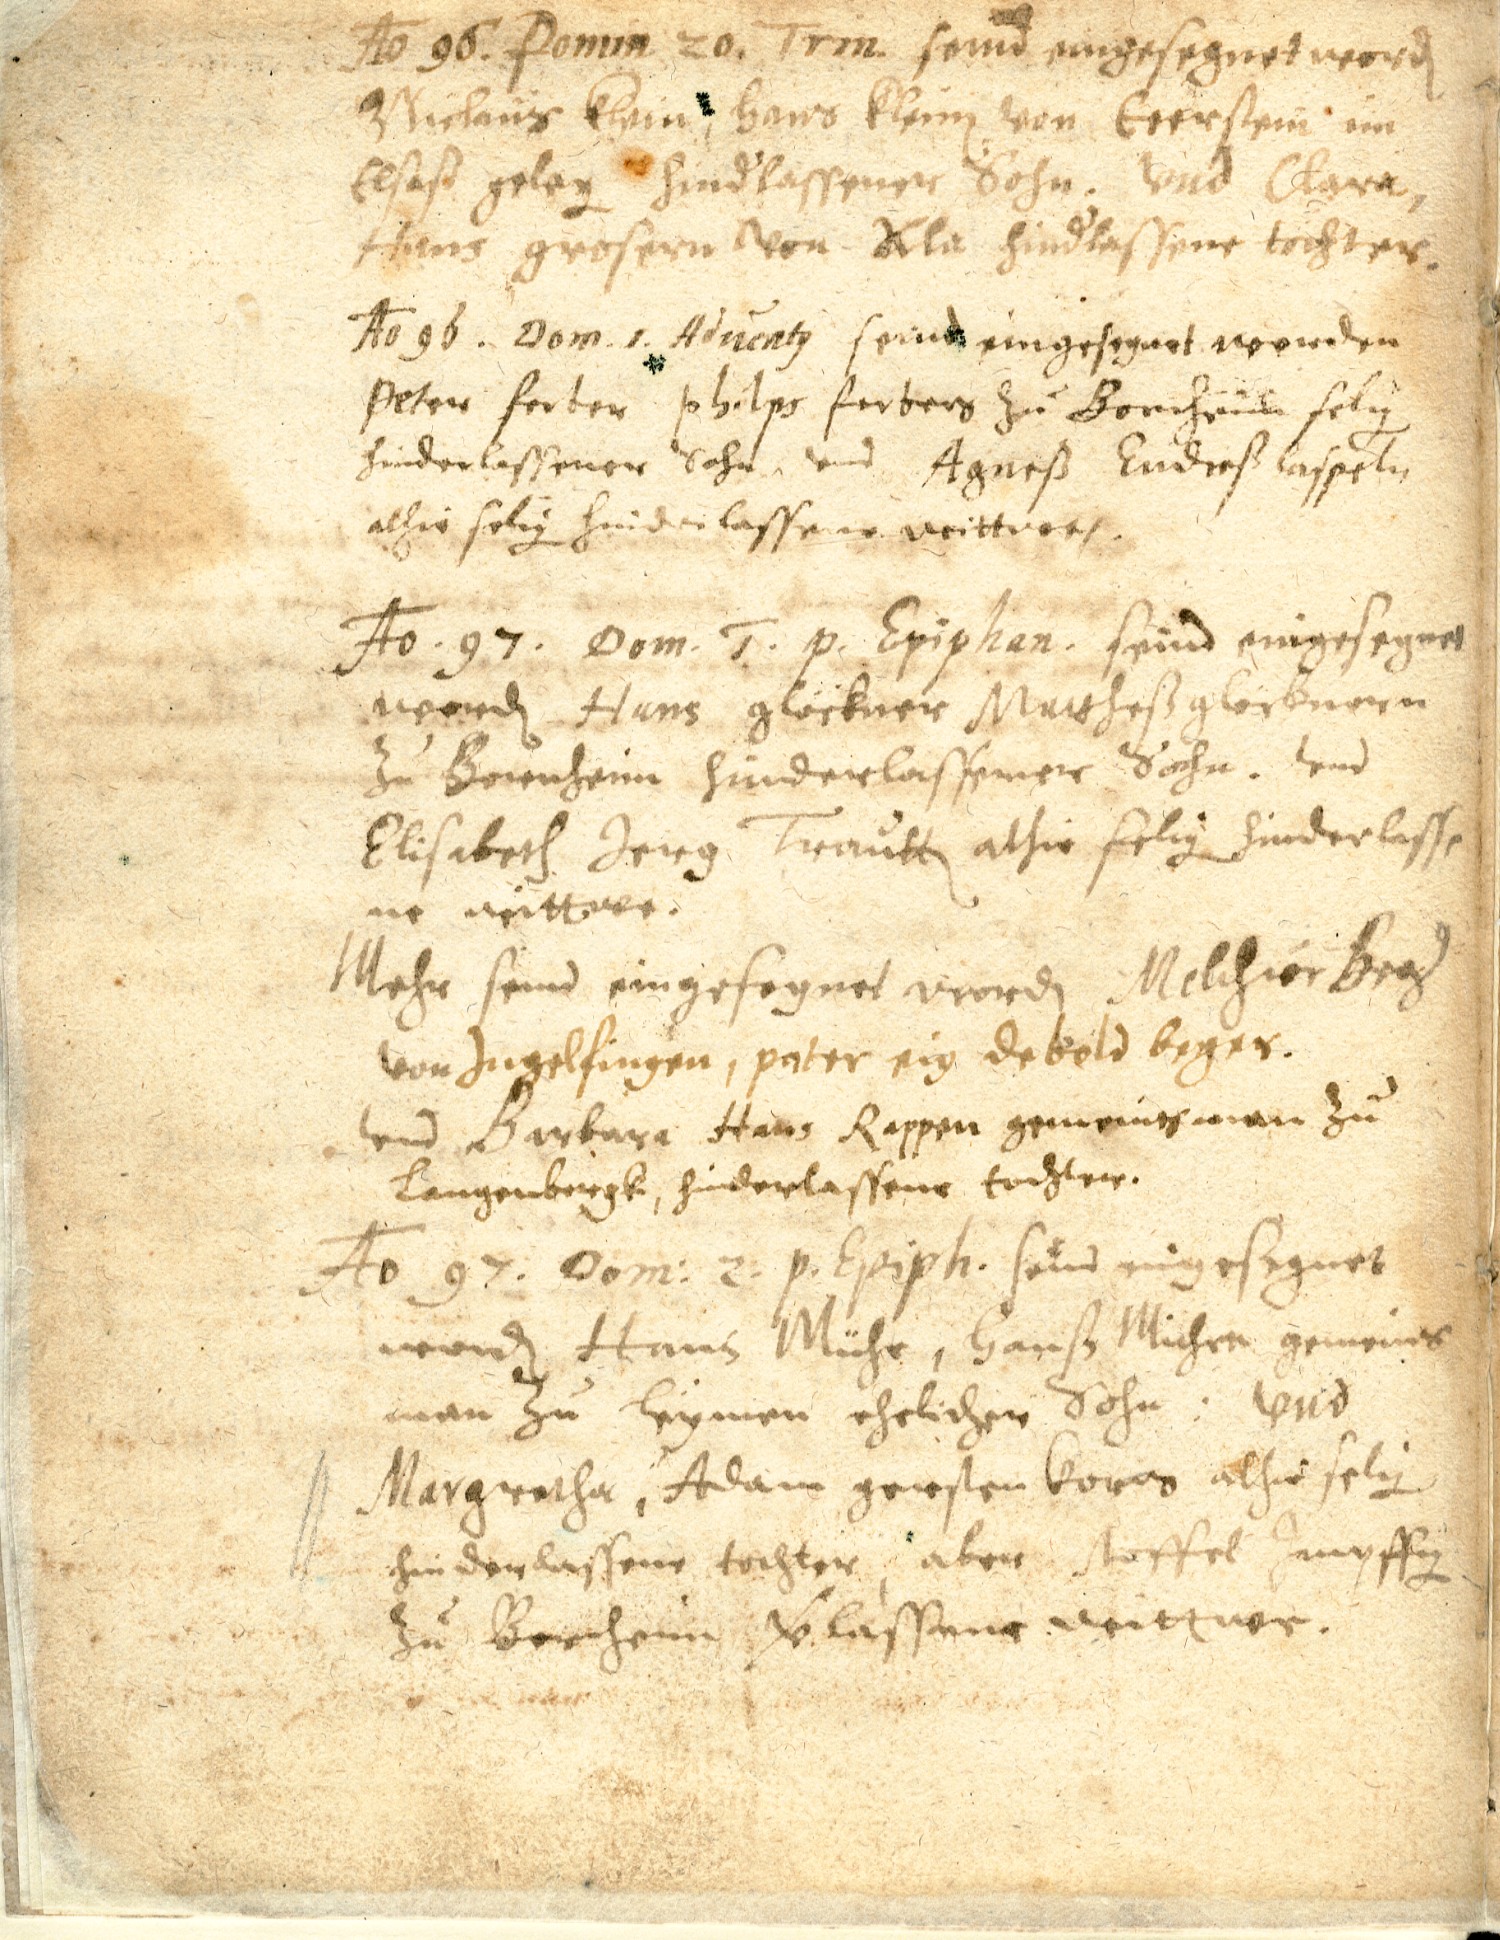 Ao 96. Domin 20. Trin. seind eingesegnet word
Niclaus Klein, Hans Klein von Eerstein im
Elsaß geleg hind'lassener Sohn. Vnd Clara,
Hans grosern von Kla hind'lassene tochter.
Ao 96. Dom. 1. Aduentg seind eingesegnet worden
Peter ferber philps ferbers zu selig
hinderlassener Sohn, vnd Agneß Endreß laspeln
alhie selig hinderlassene wittwe.
Ao. 97. Dom. 1. p. Epiphan. seind eingesegnet
word Hans glöckner Mattheß glöcknern
zu Bornheim hinderlassener Sohn. vnd
Elisabeth Jerg Trautt alhie selig hinderlasse
ne wittwe.
Mehr seind eingesegnet word Melchior
von Ingelfingen, pater eig debold beger.
vnd Barbara Hans Rappen gemeinsman zu
Langenbergk, hinderlassene tochter.
Ao 97. Dom: 2. p. Epiph. seind eingesegnet
word Hans Mühe, Hanß gemeins
man zu leymen ehelicher Sohn: Vnd
Margretha, Adam gersten korns alhie selig
hinderlassene tochter, aber stoffel
zu v'lassene wittwe.